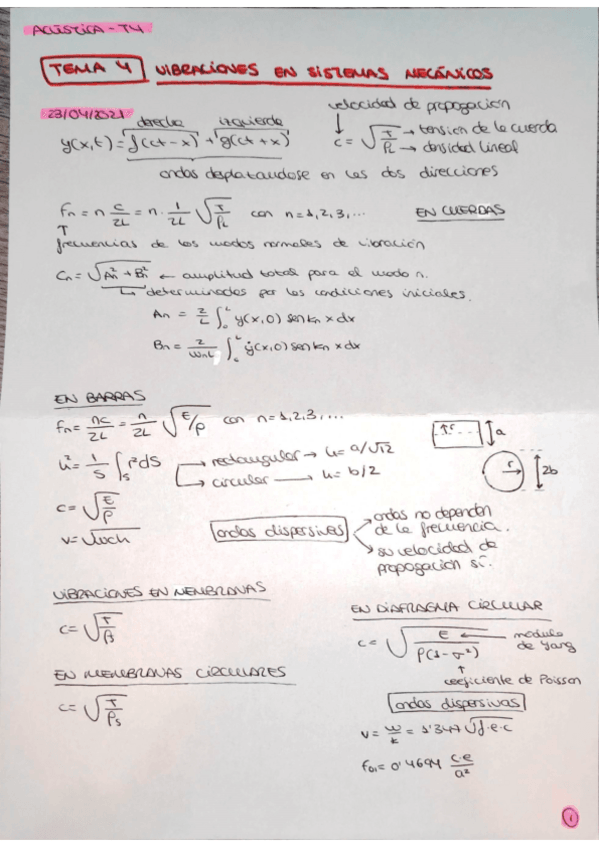 ACÚSTICA - T4
TEMA 4 VIBRACIONES EN SISTEMAS MECÁNICOS
23/04/2021
velocidad de propogación
derecha izquierda
y(x,t) = f(ct-x) + g(ct+x)
c = √(T/ρL) → tension de la cuerda
→ densidad lineal
ondas desplazandose en las dos direcciones
fn = n c/2L = n · 1/2L √(T/ρL) con n=1,2,3,...
EN CUERDAS
frecuencias de los modos normales de vibración
Cn = √(An² + Bn²) ← amplitud total para el modo n.
determinados por las condiciones iniciales.
An = 2/L ∫₀ᴸ y(x,0) sen kn x dx
Bn = 2/(wn L) ∫₀ᴸ ẏ(x,0) sen kn x dx
EN BARRAS
fn = nc/2L = n/2L √(E/ρ) con n=1,2,3,...
r a
u² = 1/S ∫s r² dS
→ rectangular → u = a/√12
→ circular → u = b/2
r 2b
c = √(E/ρ)
v = √(wch)
ondas dispersivas
ondas no dependen
de la frecuencia.
su velocidad de
propogación sí.
VIBRACIONES EN MENBRANAS
c = √(T/ρs)
EN DIAFRAGMA CIRCULAR
c = √(E/ρ(1-σ²)) ← modulo
de Yang
coeficiente de Poisson
EN MEMBRANAS CIRCULARES
c = √(T/ρs)
ondas dispersivas
v = w/k = 1'347 √(f·e·c)
f01 = 0'4694 c·e/a²
1